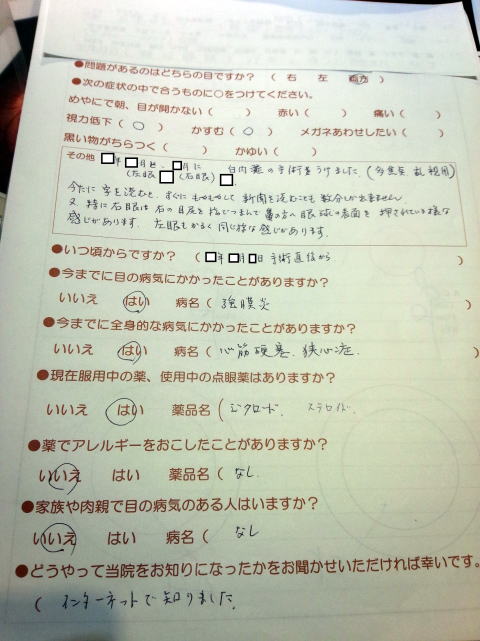 ●問題があるのはどちらの目ですか？ （ 右 左 両方 ）
●次の症状の中で合うものに○をつけてください。
めやにで朝、目が開かない（ ） 赤い（ ） 痛い（ ）
視力低下（ ○ ） かすむ（ ○ ） メガネあわせしたい（ ）
黒い物がちらつく（ ） かゆい（ ）
その他 □年□月と、□月に 白内障の手術をうけました。（多焦点 乱視用）
（左眼□（右眼）□
今だに字を読むと、すぐにもやもやして新聞を読むことも数分しか出来ません
又 特に右眼は右の目尻を指でつまんで鼻の方へ眼球の表面を 押されている様な
感じがあります。 左眼もかるく同じ様な感じがあります。
●いつ頃からですか？ （ □年□月□日 手術直後から ）
●今までに目の病気にかかったことがありますか？
いいえ はい 病名（ 強膜炎 ）
●今までに全身的な病気にかかったことがありますか？
いいえ はい 病名（ 心筋梗塞、狭心症 ）
●現在服用中の薬、使用中の点眼薬はありますか？
いいえ はい 薬品名（ ジクロード. ステロイド.
●薬でアレルギーをおこしたことがありますか？
いいえ はい 薬品名（ なし.
●家族や肉親で目の病気のある人はいますか？
いいえ はい 病名（ なし
●どうやって当院をお知りになったかをお聞かせいただければ幸いです。
（ インターネットで知りました.